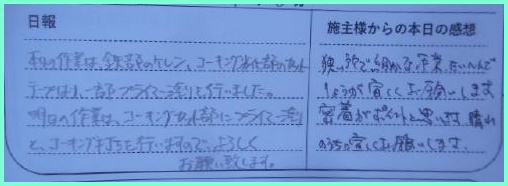 日報
本日の作業は、鉄部のケレン、コーキング
テープはり、一部プライマー塗りを行いました。
明日の作業は、コーキング部にプライマー塗り
と、コーキング打ちを行いますので、よろしく
お願い致します。
施主様からの本日の感想
狭い所で細かな作業たいへんで
しょうが宜しくお願いします
密着がポイントと思います 晴れ
のうちに宜しくお願いします。